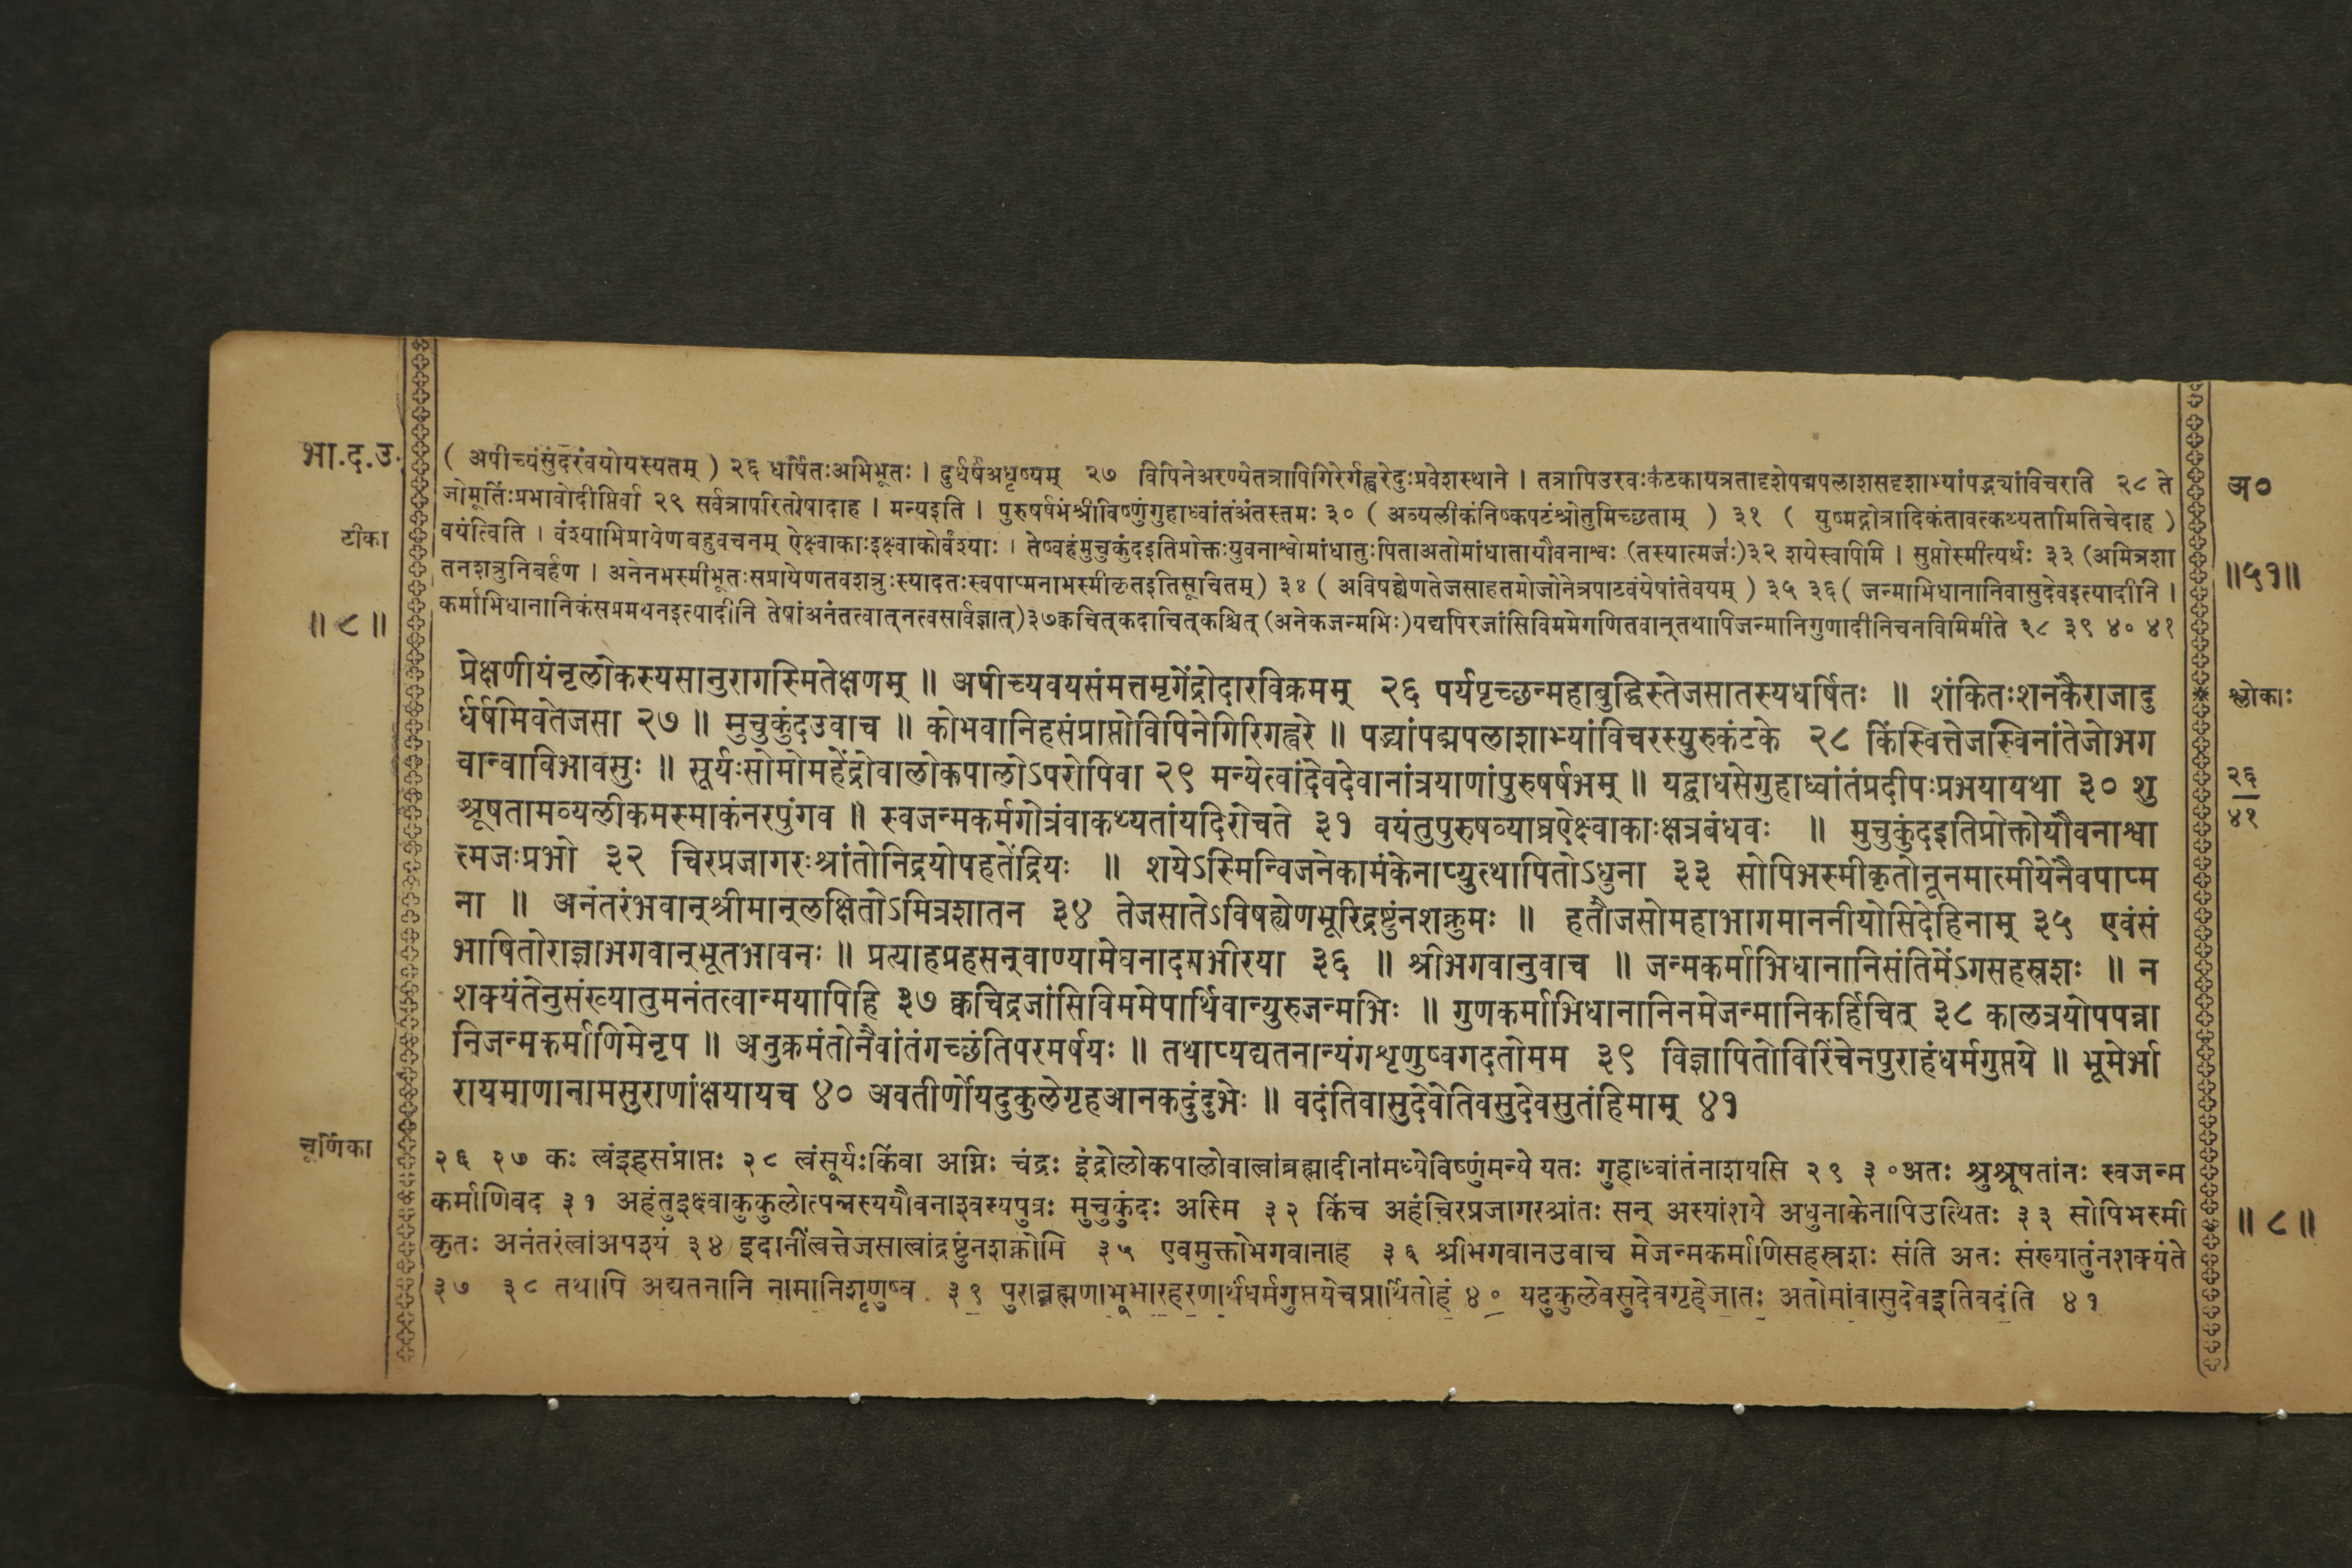 भा.द.उ.
( अपीच्यंसुंदरंवयोयस्यतम् ) २६ धर्षितःअभिभूतः । दुर्धर्षंअधृष्यम् २७ विपिनेअरण्येतत्रापिगिरेर्गह्वरेदुःप्रवेशस्थाने । तत्रापिउरवःकंटकायत्रतादृशेपद्मपलाशसदृशाभ्यांपद्भ्यांविचरति २८ ते
अ०
जोमूर्तिःप्रभावोदीप्तिर्वा २९ सर्वत्रापरितोषादाह । मन्यइति । पुरुषर्षभंश्रीविष्णुंगुहाध्वांतंअंतस्तमः ३० ( अव्यलीकंनिष्कपटंश्रोतुमिच्छताम् ) ३१ ( युष्मद्गोत्रादिकंतावत्कथ्यतामितिचेदाह )
टीका
वयंत्विति । वंश्याभिप्रायेणबहुवचनम् ऐक्ष्वाकाःइक्ष्वाकोर्वंश्याः । तेष्वहंमुचुकुंदइतिप्रोक्तःयुवनाश्वोमांधातुःपिताअतोमांधातायौवनाश्वः (तस्यात्मजः)३२ शयेस्वापिमि । सुप्तोस्मीत्यर्थः ३३ (अमित्रशा
तनशत्रुनिबर्हण । अनेनभस्मीभूतःसप्रायेणतवशत्रुःस्यादतःस्वपाप्मनाभस्मीकृतइतिसूचितम्) ३४ ( अविषह्येणतेजसाहतमोजोनेत्रपाटवंयेषांतेवयम् ) ३५ ३६ ( जन्माभिधानानिवासुदेवइत्यादीनि ।
॥५१॥
॥ ८ ॥
कर्माभिधानानिकंसप्रमथनइत्यादीनि तेषांअनंतत्वात्नत्वसार्वज्ञात्)३७क्वचित्कदाचित्कश्चित् (अनेकजन्मभिः)यद्यपिरजांसिविममेगणितवान्तथापिजन्मानिगुणादीनिचनविमिमीते ३८ ३९ ४० ४१
प्रेक्षणीयंनृलोकस्यसानुरागस्मितेक्षणम् ॥ अपीच्यवयसंमत्तमृगेंद्रोदारविक्रमम् २६ पर्यपृच्छन्महाबुद्धिस्तेजसातस्यधर्षितः ॥ शंकितःशनकैराजादु
श्लोकाः
र्धर्षमिवतेजसा २७ ॥ मुचुकुंदउवाच ॥ कोभवानिहसंप्राप्तोविपिनेगिरिगह्वरे ॥ पद्भ्यांपद्मपलाशाभ्यांविचरस्युरुकंटके २८ किंस्वित्तेजस्विनांतेजोभग
वान्वाविभावसुः ॥ सूर्यःसोमोमहेंद्रोवालोकपालोऽपरोपिवा २९ मन्येत्वांदेवदेवानांत्रयाणांपुरुषर्षभम् ॥ यद्बाधसेगुहाध्वांतंप्रदीपःप्रभयायथा ३० शु
२६
४१
श्रूषतामव्यलीकमस्माकंनरपुंगव ॥ स्वजन्मकर्मगोत्रंवाकथ्यतांयदिरोचते ३१ वयंतुपुरुषव्याघ्रऐक्ष्वाकाःक्षत्रबंधवः ॥ मुचुकुंदइतिप्रोक्तोयौवनाश्वा
त्मजःप्रभो ३२ चिरप्रजागरःश्रांतोनिद्रयोपहतेंद्रियः ॥ शयेऽस्मिन्विजनेकामंकेनाप्युत्थापितोऽधुना ३३ सोपिभस्मीकृतोनूनमात्मीयेनैवपाप्म
ना ॥ अनंतरंभवान्श्रीमान्लक्षितोऽमित्रशातन ३४ तेजसातेऽविषह्येणभूरिद्रष्टुंनशक्नुमः ॥ हतौजसोमहाभागमाननीयोसिदेहिनाम् ३५ एवंसं
भाषितोराज्ञाभगवान्भूतभावनः ॥ प्रत्याहप्रहसन्वाण्यामेघनादगभीरया ३६ ॥ श्रीभगवानुवाच ॥ जन्मकर्माभिधानानिसंतिमेंऽगसहस्रशः ॥ न
शक्यंतेनुसंख्यातुमनंतत्वान्मयापिहि ३७ क्वचिद्रजांसिविममेपार्थिवान्युरुजन्मभिः ॥ गुणकर्माभिधानानिनमेजन्मानिकर्हिचित् ३८ कालत्रयोपपन्ना
निजन्मकर्माणिमेनृप ॥ अनुक्रमंतोनैवांतंगच्छंतिपरमर्षयः ॥ तथाप्यद्यतनान्यंगशृणुष्वगदतोमम ३९ विज्ञापितोविरिंचेनपुराहंधर्मगुप्तये ॥ भूमेर्भा
रायमाणानामसुराणांक्षयायच ४० अवतीर्णोयदुकुलेगृहआनकदुंदुभेः ॥ वदंतिवासुदेवेतिवसुदेवसुतंहिमाम् ४१
चूर्णिका
२६ २७ कः त्वंइहसंप्राप्तः २८ त्वंसूर्यःकिंवा अग्निः चंद्रः इंद्रोलोकपालोवात्वांब्रह्मादीनांमध्येविष्णुंमन्ये यतः गुहाध्वांतंनाशयसि २९ ३०अतः श्रुश्रूषतांनः स्वजन्म
कर्माणिवद ३१ अहंतुइक्ष्वाकुकुलोत्पन्नस्ययौवनाश्वस्यपुत्रः मुचुकुंदः अस्मि ३२ किंच अहंचिरप्रजागरश्रांतः सन् अस्यांशये अधुनाकेनापिउत्थितः ३३ सोपिभस्मी
॥ ८ ॥
कृतः अनंतरंत्वांअपश्यं ३४ इदानींत्वत्तेजसात्वांद्रष्टुंनशक्नोमि ३५ एवमुक्तोभगवानाह ३६ श्रीभगवानउवाच मेजन्मकर्माणिसहस्रशः संति अतः संख्यातुंनशक्यंते
३७ ३८ तथापि अद्यतनानि नामानिशृणुष्व ३९ पुराब्रह्मणाभूभारहरणार्थंधर्मगुप्तयेचप्रार्थितोहं ४० यदुकुलेवसुदेवगृहेजातः अतोमांवासुदेवइतिवदंति ४१